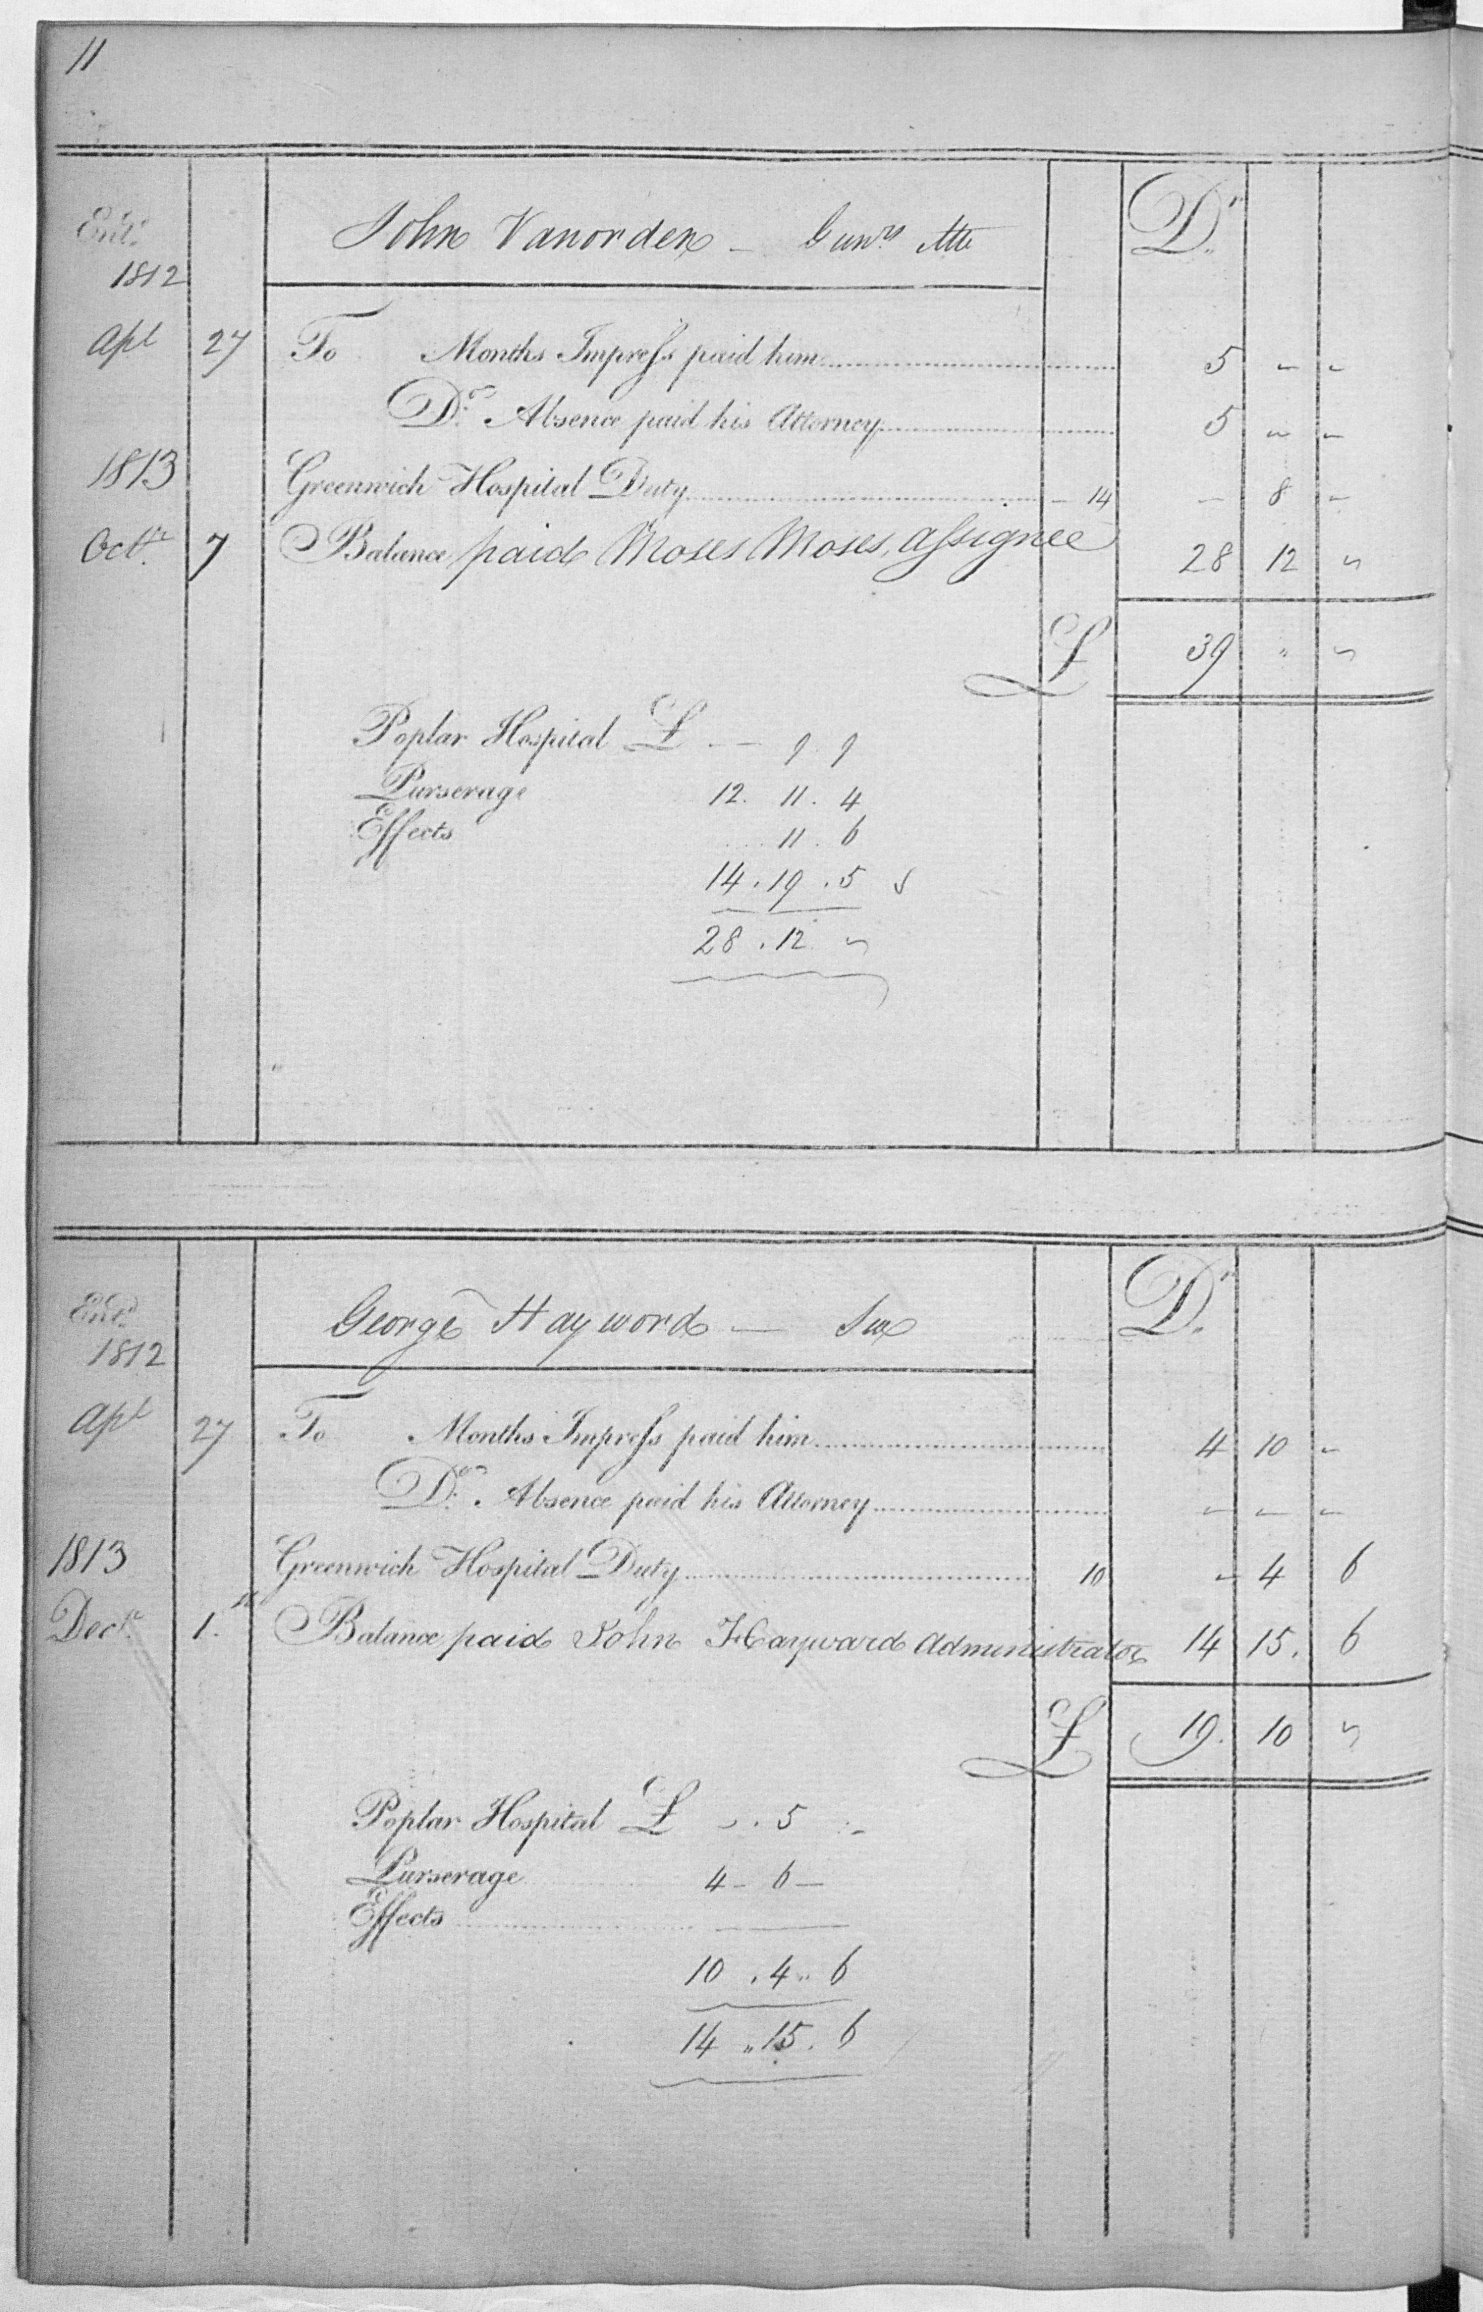 11
Ent.
1812
John Vanorden — Gun.rs Mte
D.r
Apl 27 To Months Impress paid him 5 - -
D.o Absence paid his Attorney 5 - -
1813 Greenwich Hospital Duty 14 - 8 -
Oct.r 7 Balance paid Moses Moses, assignee 28 12 -
£ 39 " -
Poplar Hospital £ — 9 9
Purserage 12. 11. 4
Effects 11. 6
14. 19. 5
28. 12 -
Ent.d
1812
George Hayword —
D.r
Apl 27 To Months Impress paid him 4 10 -
D.o Absence paid his Attorney - - -
1813 Greenwich Hospital Duty 10 - 4 6
Dec.r 1.st Balance paid John Hayward Administrator 14 15. 6
£ 19. 10 -
Poplar Hospital £ -. 5 -
Purserage 4 - 6 —
Effects ——
10. 4. 6
14 " 15. 6